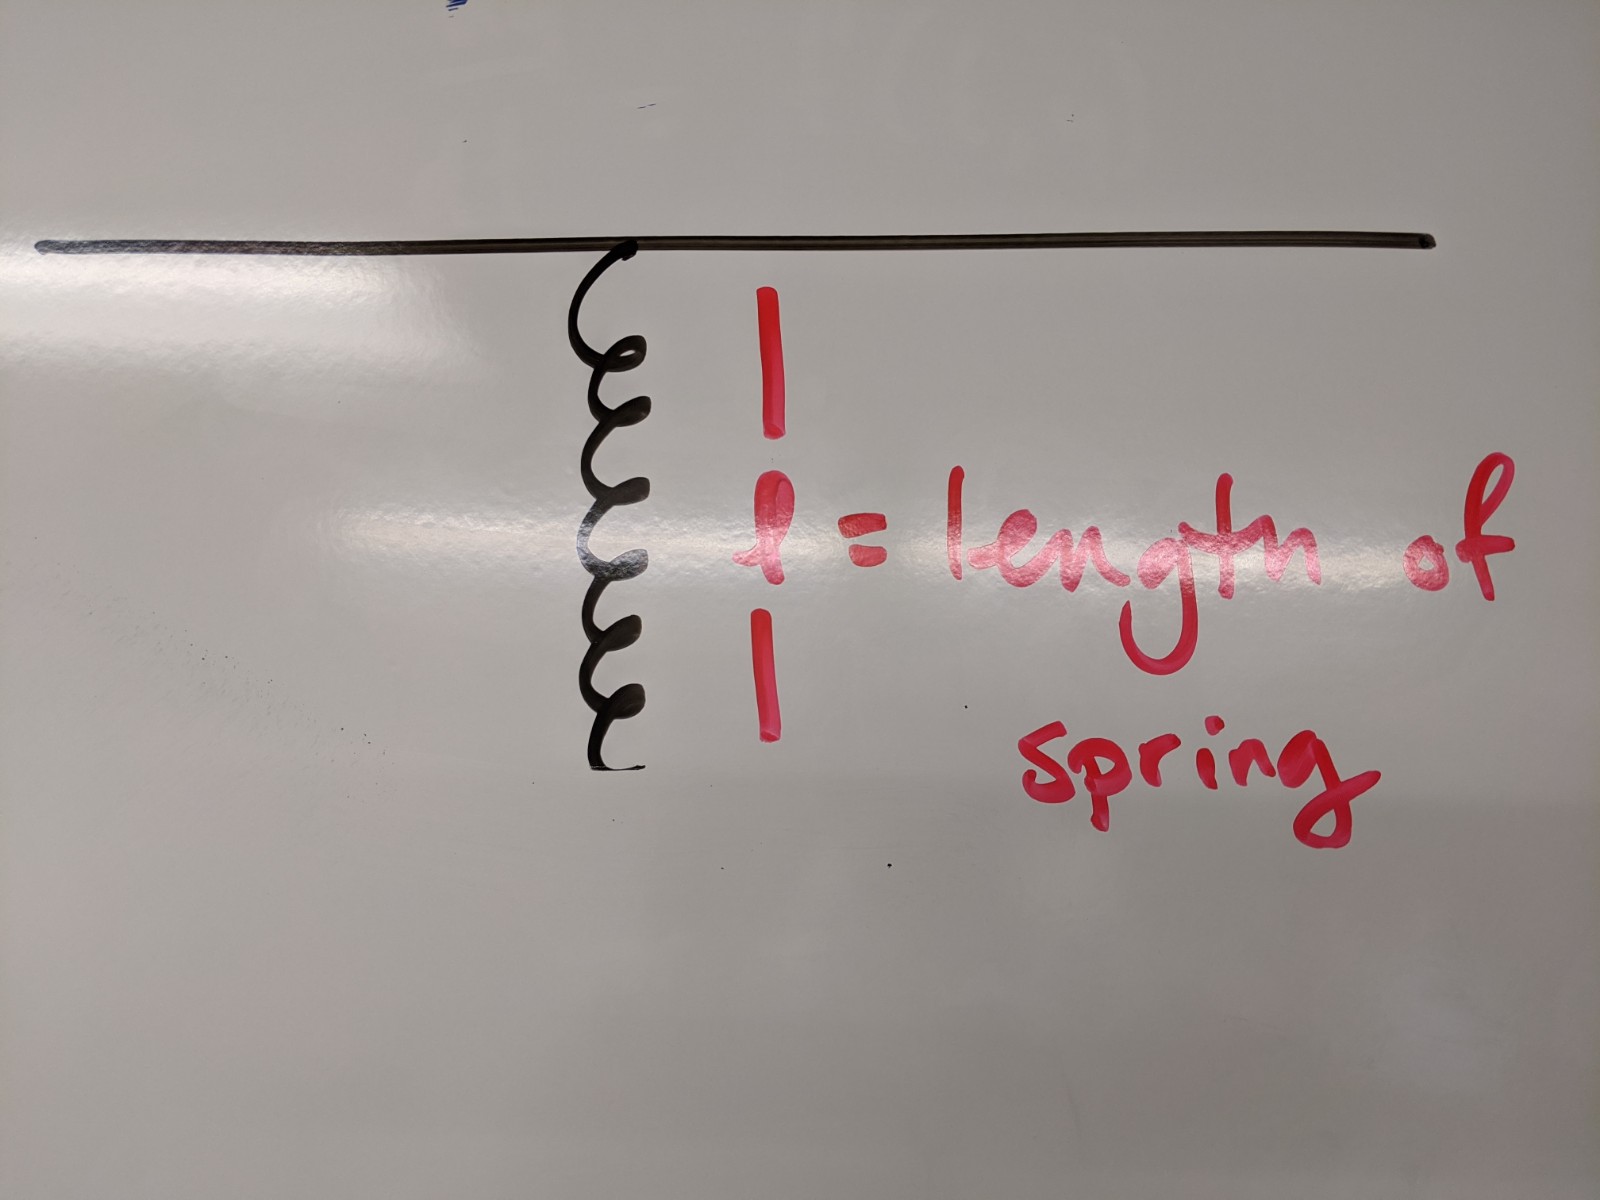 l = length of
spring